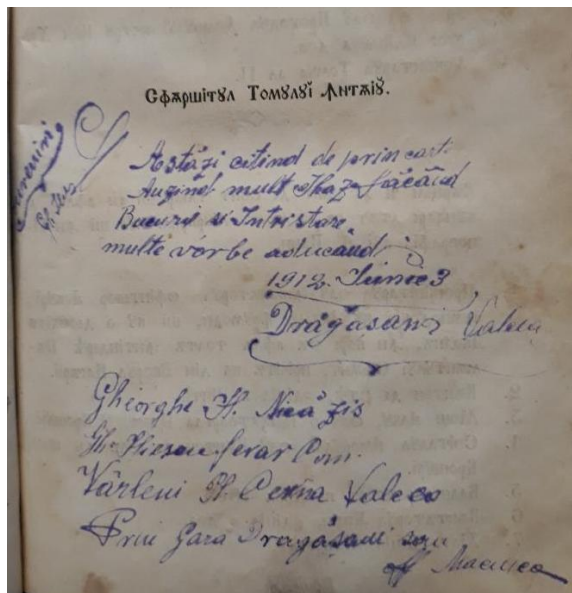 Сфѫршітꙋл Томꙋлꙋї Ꙟнтѫїꙋ.
Astăzi citind de prin cart.
Auzind mult haz făcând
Bucurii si Intristare
multe vorbe aducand
1912. Iunie 3
Drăgăsani Valcea
Gheorghe H. Nică zis
Gh. Iliescu ferar Com.
Vârleni Pl. Cerna Valcea
Prin Gara Dragăsani